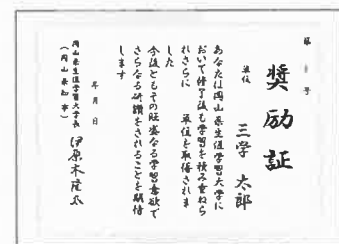 第　号
奨励証
単位　三学 太郎
あなたは岡山県生涯学習大学に
おいて修了後も学習を積み重ねら
れさらに　単位を取得されま
した
今後ともその旺盛なる学習意欲で
さらなる研鑽をされることを期待
します
年 月 日
岡山県生涯学習大学長
（岡山県知事）
伊原木隆太